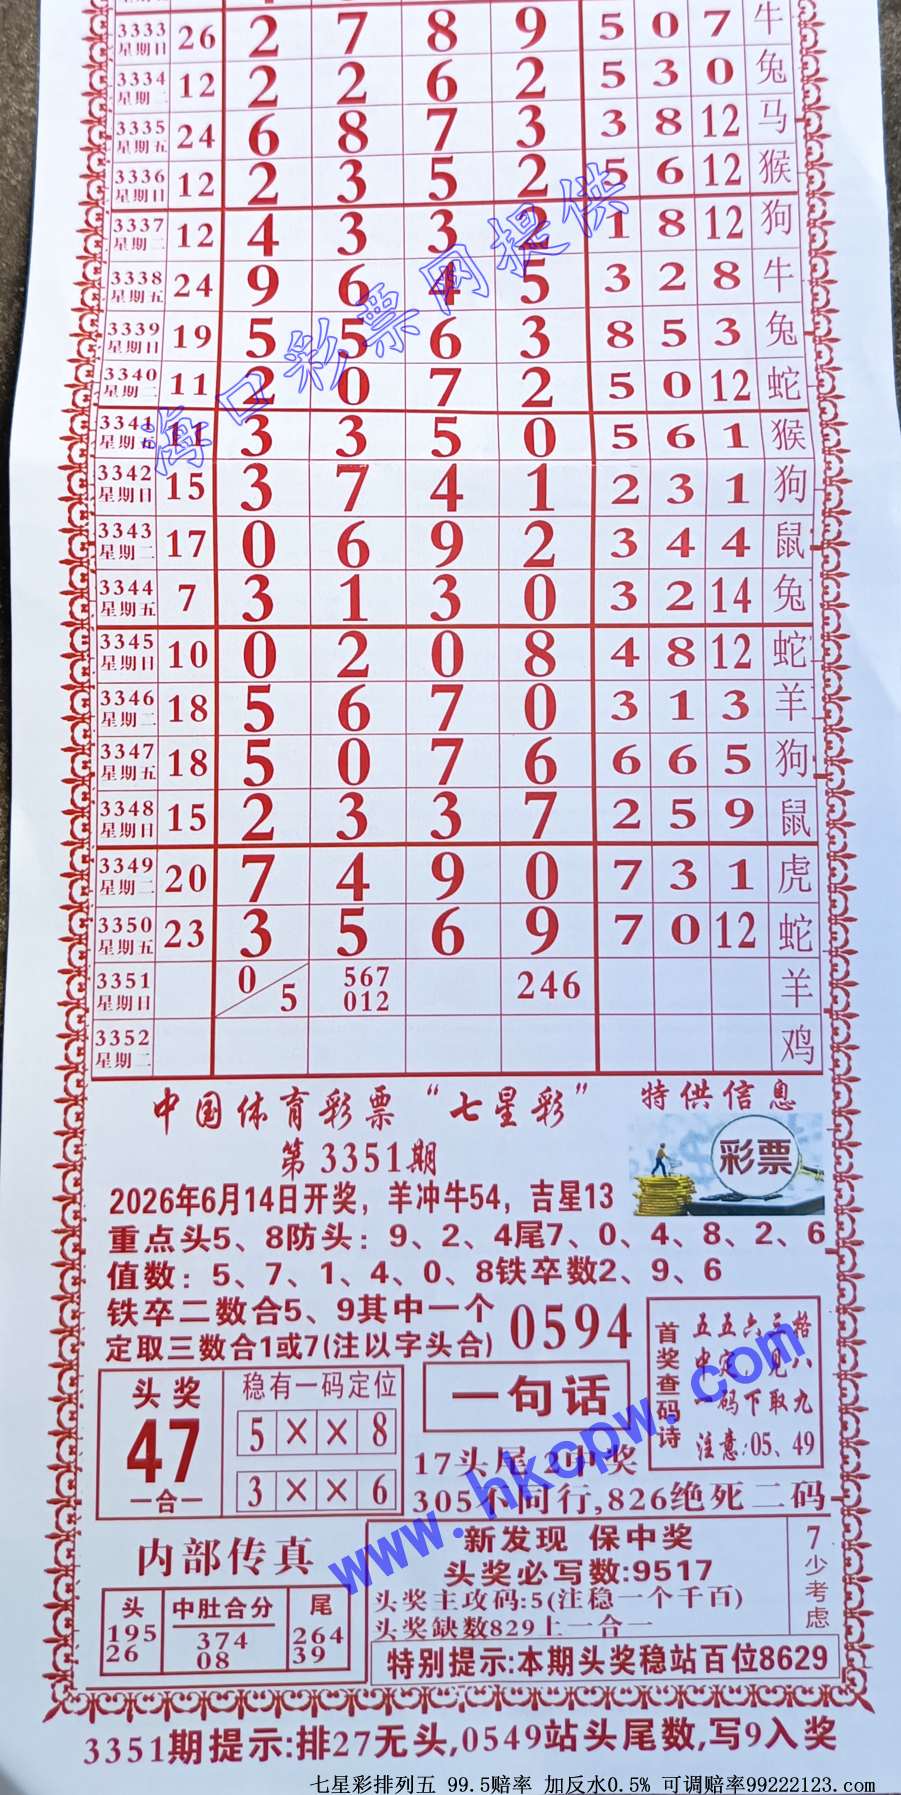 3333 星期日 26 2 7 8 9 5 0 7 牛
3334 星期二 12 2 2 6 2 5 3 0 兔
3335 星期五 24 6 8 7 3 3 8 12 马
3336 星期日 12 2 3 5 2 5 6 12 猴
3337 星期二 12 4 3 3 2 1 8 12 狗
3338 星期五 24 9 6 4 5 3 2 8 牛
3339 星期日 19 5 5 6 3 8 5 3 兔
3340 星期二 11 2 0 7 2 5 0 12 蛇
3341 星期五 11 3 3 5 0 5 6 1 猴
3342 星期日 15 3 7 4 1 2 3 1 狗
3343 星期二 17 0 6 9 2 3 4 4 鼠
3344 星期五 7 3 1 3 0 3 2 14 兔
3345 星期日 10 0 2 0 8 4 8 12 蛇
3346 星期二 18 5 6 7 0 3 1 3 羊
3347 星期五 18 5 0 7 6 6 6 5 狗
3348 星期日 15 2 3 3 7 2 5 9 鼠
3349 星期二 20 7 4 9 0 7 3 1 虎
3350 星期五 23 3 5 6 9 7 0 12 蛇
3351 星期日 0/5 567 012 246 羊
3352 星期二 鸡
海口彩票网提供
中国体育彩票“七星彩” 特供信息
第3351期
彩票
2026年6月14日开奖，羊冲牛54，吉星13
重点头5、8防头：9、2、4尾7、0、4、8、2、6
值数：5、7、1、4、0、8铁卒数2、9、6
铁卒二数合5、9其中一个
定取三数合1或7(注以字头合)
0594
首奖查码诗
五五六三格
中定，见八
一码下取九
注意:05、49
头奖
47
一合一
稳有一码定位
5 × × 8
3 × × 6
一句话
17头尾2中奖
305不同行,826绝死二码
www.hkcpw.com
内部传真
头
195
26
中肚合分
374
08
尾
264
39
新发现 保中奖
头奖必写数:9517
头奖主攻码:5(注稳一个千百)
头奖缺数829上一合一
7少考虑
特别提示:本期头奖稳站百位8629
3351期提示:排27无头,0549站头尾数,写9入奖
七星彩排列五 99.5赔率 加反水0.5% 可调赔率99222123.com